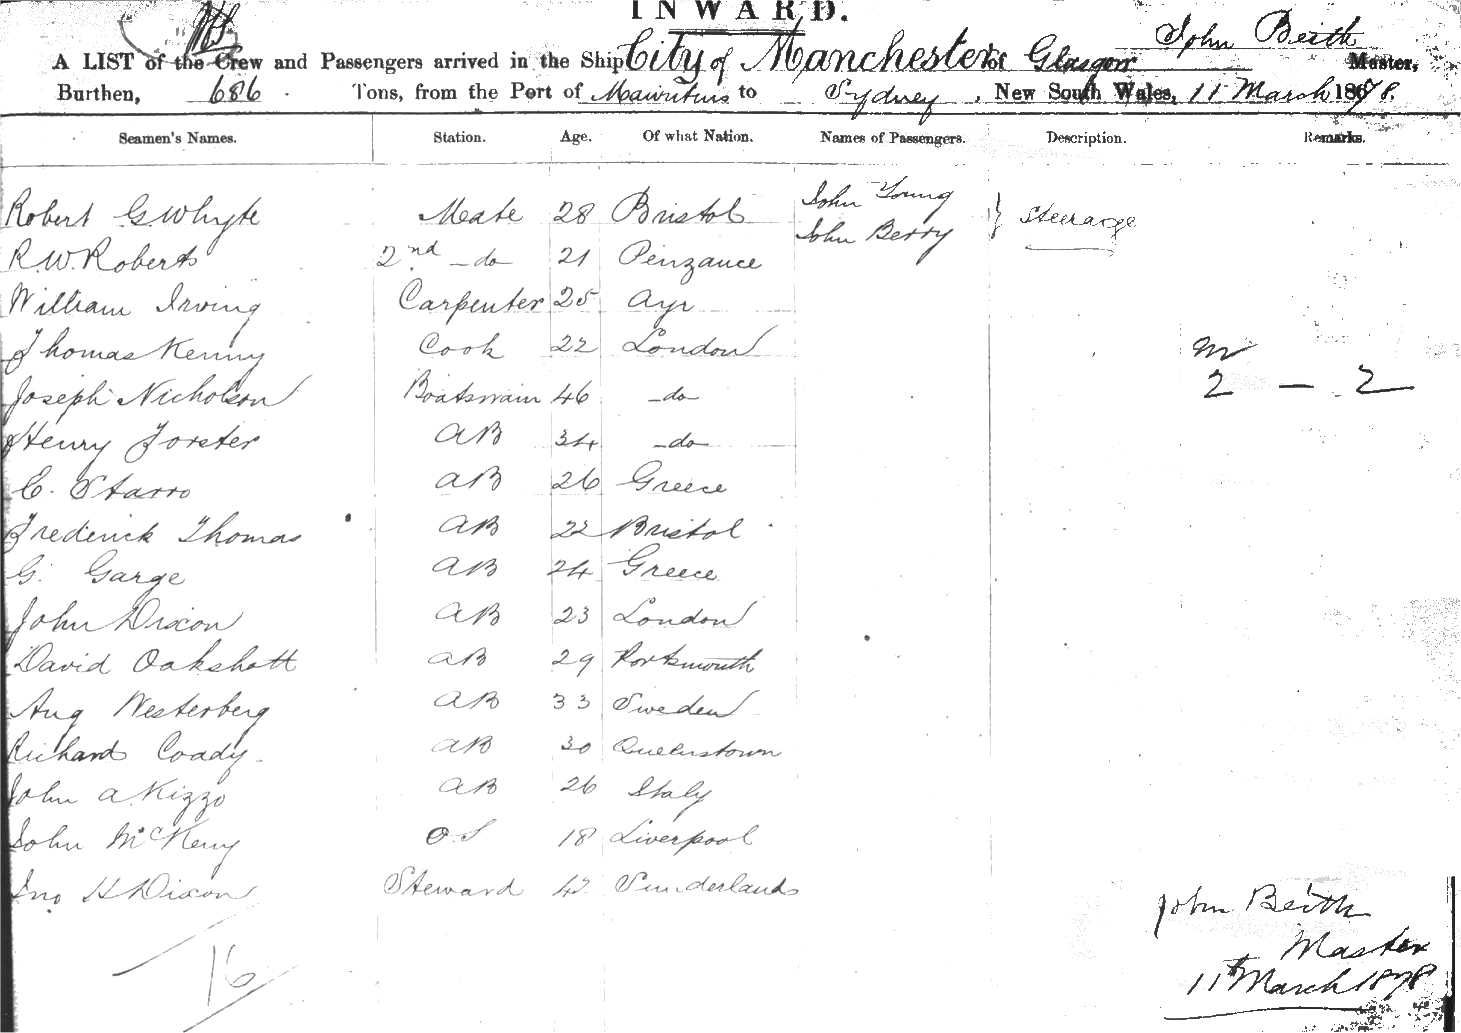 INWARD.
John Beith
A LIST of the Crew and Passengers arrived in the Ship City of Manchester of Glasgow Master,
Burthen, 686 Tons, from the Port of Mauritius to Sydney, New South Wales, 11 March 1878.
Seamen's Names. Station. Age. Of what Nation. Names of Passengers. Description. Remarks.
Robert G. Whyte Mate 28 Bristol John Young } Steerage
John Berry
R. W. Roberts 2nd -do 21 Penzance
William Irving Carpenter 25 Ayr
Thomas Kenny Cook 22 London m
Joseph Nicholson Boatswain 46 -do- 2 — 2
Henry Forster AB 34 -do-
E. Starro AB 26 Greece
Frederick Thomas AB 22 Bristol
G. Garge AB 24 Greece
John Dixon AB 23 London
David Oakshott AB 29 Portsmouth
Aug Westerberg AB 33 Sweden
Richard Coady AB 30 Queenstown
John A. Kizzo AB 26 Italy
John McKeny OS 18 Liverpool
Jno H Dixon Steward 42 Sunderland
John Beith
Master
11th March 1878
16